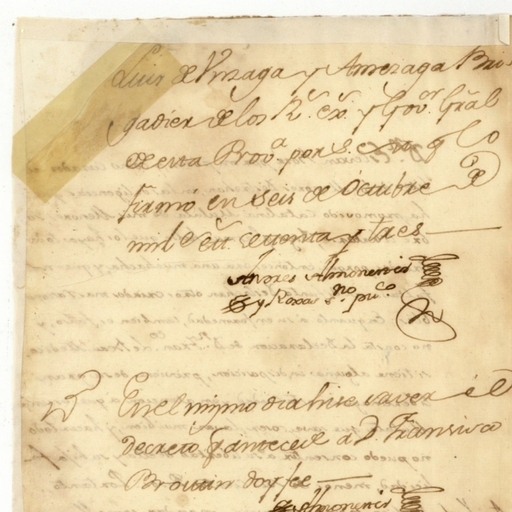 Luis de Vnzaga y Amezaga Bri
gadier de los R.^s ex.^s y Gov.^or Gral
de esta Prov.^a por S. q lo
firmo en seis de Octubre
mil set.^s setenta y tres
Andres Almonester
y Roxas s.^no pu.^co
En el mismo dia hise saver el
decreto q antecede a D.^n Fransisco
Brouttin doy fee
Almonester